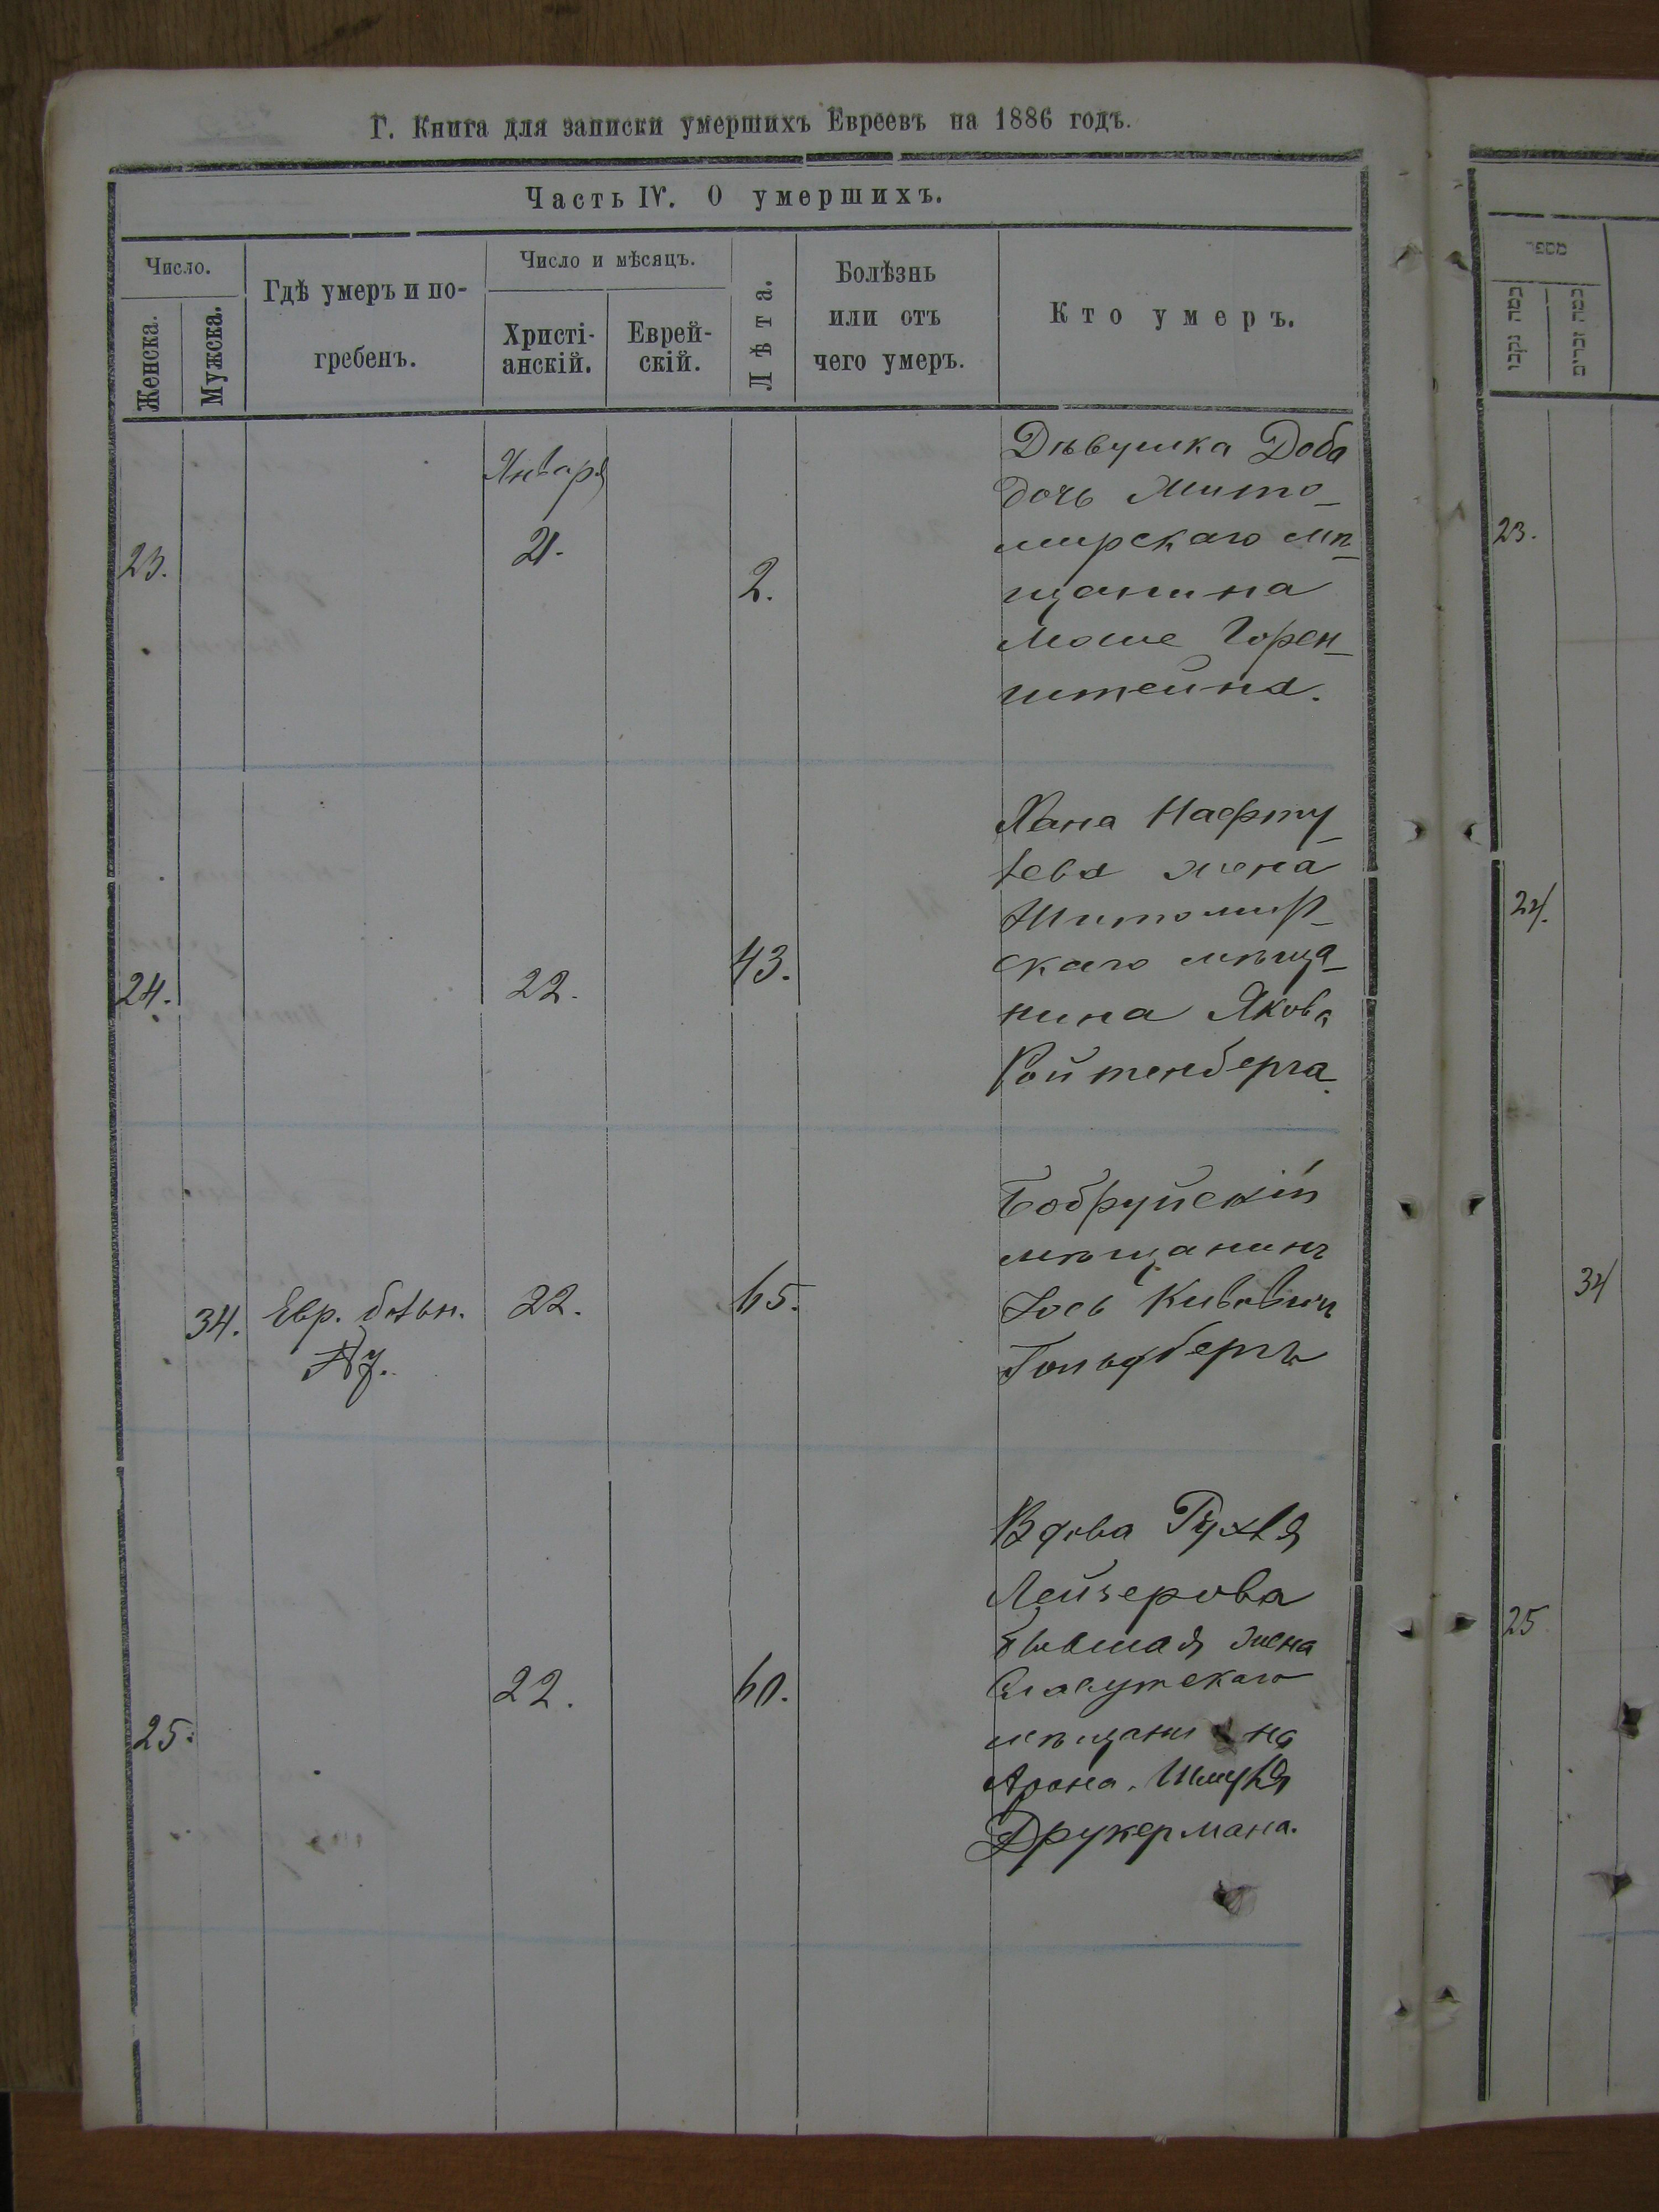 Г. Книга для записки умершихъ Евреевъ на 1886 годъ.
Часть IV. О умершихъ.
Число.
Женска.
Мужска.
Гдѣ умеръ и по-
гребенъ.
Число и мѣсяцъ.
Христі-
анскій.
Еврей-
скій.
Лѣта.
Болѣзнь
или отъ
чего умеръ.
Кто умеръ.
23.
Января
21.
2.
Дѣвушка Доба
дочь Жито-
мирскаго мѣ-
щанина
Моше Горен-
штейна.
24.
22.
43.
Хана Нафту-
лева жена
Житомир-
скаго мѣща-
нина Якова
Ройтенберга.
34.
Евр. больн.
22.
65.
Бобруйскій
мѣщанинъ
Іось Кивовичъ
Гольдбергъ
25.
22.
60.
Вдова Рухля
Лейзерова
бывшая жена
Славутскаго
мѣщанина
Арона Шмуля
Друкермана.
כמה נקבות
כמה זכרים
23.
24.
34
25